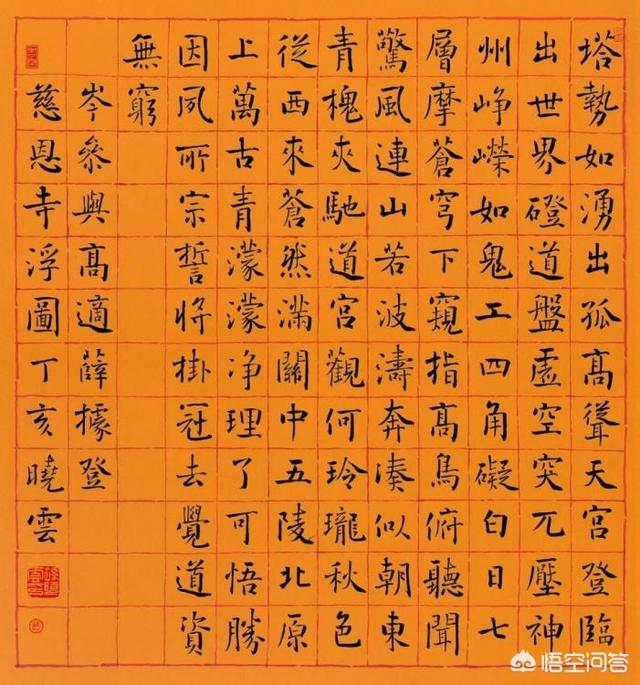 塔勢如湧出孤髙聳天宮登臨
出世界磴道盤虛空突兀壓神
州峥嶸如鬼工四角礙白日七
層摩蒼穹下窺指髙鳥俯聽聞
驚風連山若波濤奔湊似朝東
青槐夾馳道宮觀何玲瓏秋色
從西來蒼然滿關中五陵北原
上萬古青濛濛净理了可悟勝
因夙所宗誓將掛冠去覺道資
無窮
岑參與髙適薛據登
慈恩寺浮圖丁亥曉雲
悟空问答